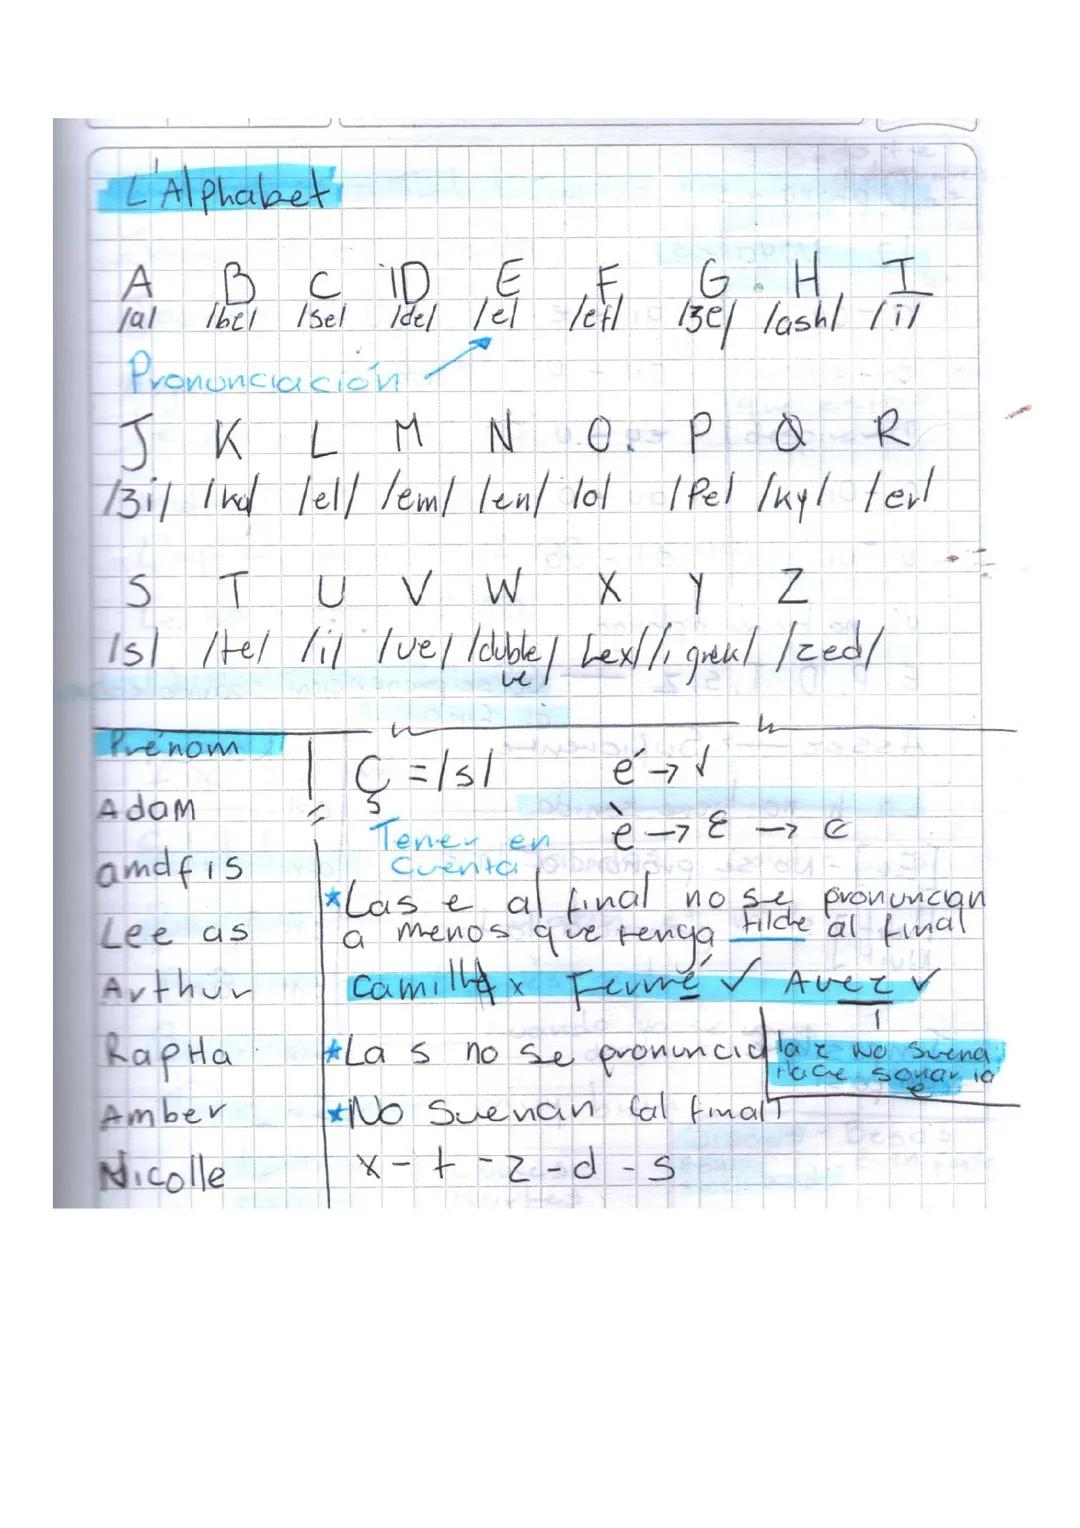 L'Alphabet
A B C D E F G H I
/a/ /be/ /se/ /de/ /e/ /ef/ /ʒe/ /ash/ /i/
Pronunciación
J K L M N O P Q R
/ʒi/ /ka/ /el/ /em/ /en/ /o/ /Pe/ /ky/ /er/
S T U V W X Y Z
/s/ /te/ /i/ /ve/ /duble ve/ /ex/ /i grek/ /zed/
Prénom
Ç = /s/ é →
Adam
Tener en è → ε → e
Cuenta
amdfis
*Las e al final no se pronuncian
Lee as
a menos que tenga tilde al final
Arthur
Camille x Fermé ✓ Avez ✓
RapHa
*La s no se pronuncia
la z no suena
Hace sonar la
e
Amber
*No Suenan (al final)
Nicolle
x - t - z - d - s